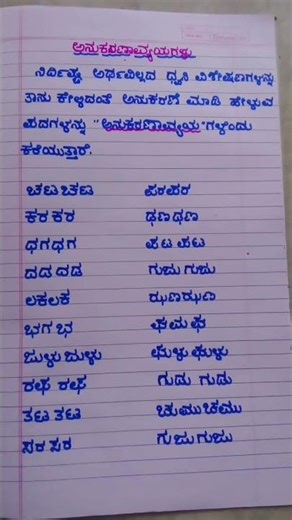 ಅನುಕರಣಾವ್ಯಯಗಳು
ನಿರ್ದಿಷ್ಟ ಅರ್ಥವಿಲ್ಲದ ಧ್ವನಿ ವಿಶೇಷಣಗಳನ್ನು
ತಾನು ಕೇಳಿದಂತೆ ಅನುಕರಣೆ ಮಾಡಿ ಹೇಳುವ
ಪದಗಳನ್ನು "ಅನುಕರಣಾವ್ಯಯ"ಗಳೆಂದು
ಕರೆಯುತ್ತಾರೆ.
ಚಟ ಚಟ ಪರಪರ
ಕರ ಕರ ಢಣ ಢಣ
ಧಗಧಗ ಪಟ ಪಟ
ದಡ ದಡ ಗುಜು ಗುಜು
ಲಕಲಕ ಝಣಝಣ
ಭಗ ಭ ಘಮ ಘ
ಜುಳ್ಳು ಜುಳ್ಳು ಘುಳ್ಳು ಘುಳ್ಳು
ರಘ ರಘ ಗುಡು ಗುಡು
ತಟ ತಟ ಚುಮು ಚುಮು
ಸರ ಸರ ಗುಜು ಗುಜು